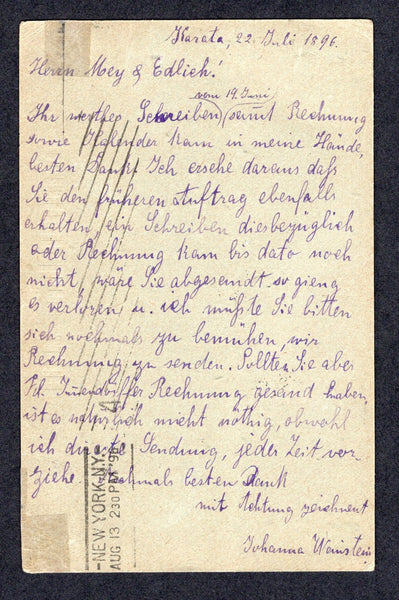 Karata, 22. Juli 1896.
Herrn Mey & Edlich!
vom 19. Juni
Ihr werthes Schreiben samt Rechnung
sowie Kalender kam in meine Hände,
besten Dank! Ich ersehe daraus daß
Sie den früheren Auftrag ebenfalls
erhalten, ein Schreiben diesbezüglich
oder Rechnung kam bis dato noch
nicht, wäre Sie abgesandt so gieng
es verloren u. ich müßte Sie bitten
sich nochmals zu bemühen, wir
Rechnung zu senden. Sollten Sie aber
Frl. Rechnung gesand haben,
ist es nicht nöthig, obwohl
ich die Sendung, jeder Zeit vor
ziehe. Nochmals besten Dank
mit Achtung zeichnent
Johanna Weinstein
NEW YORK N.Y.
AUG 13 230 PM '96